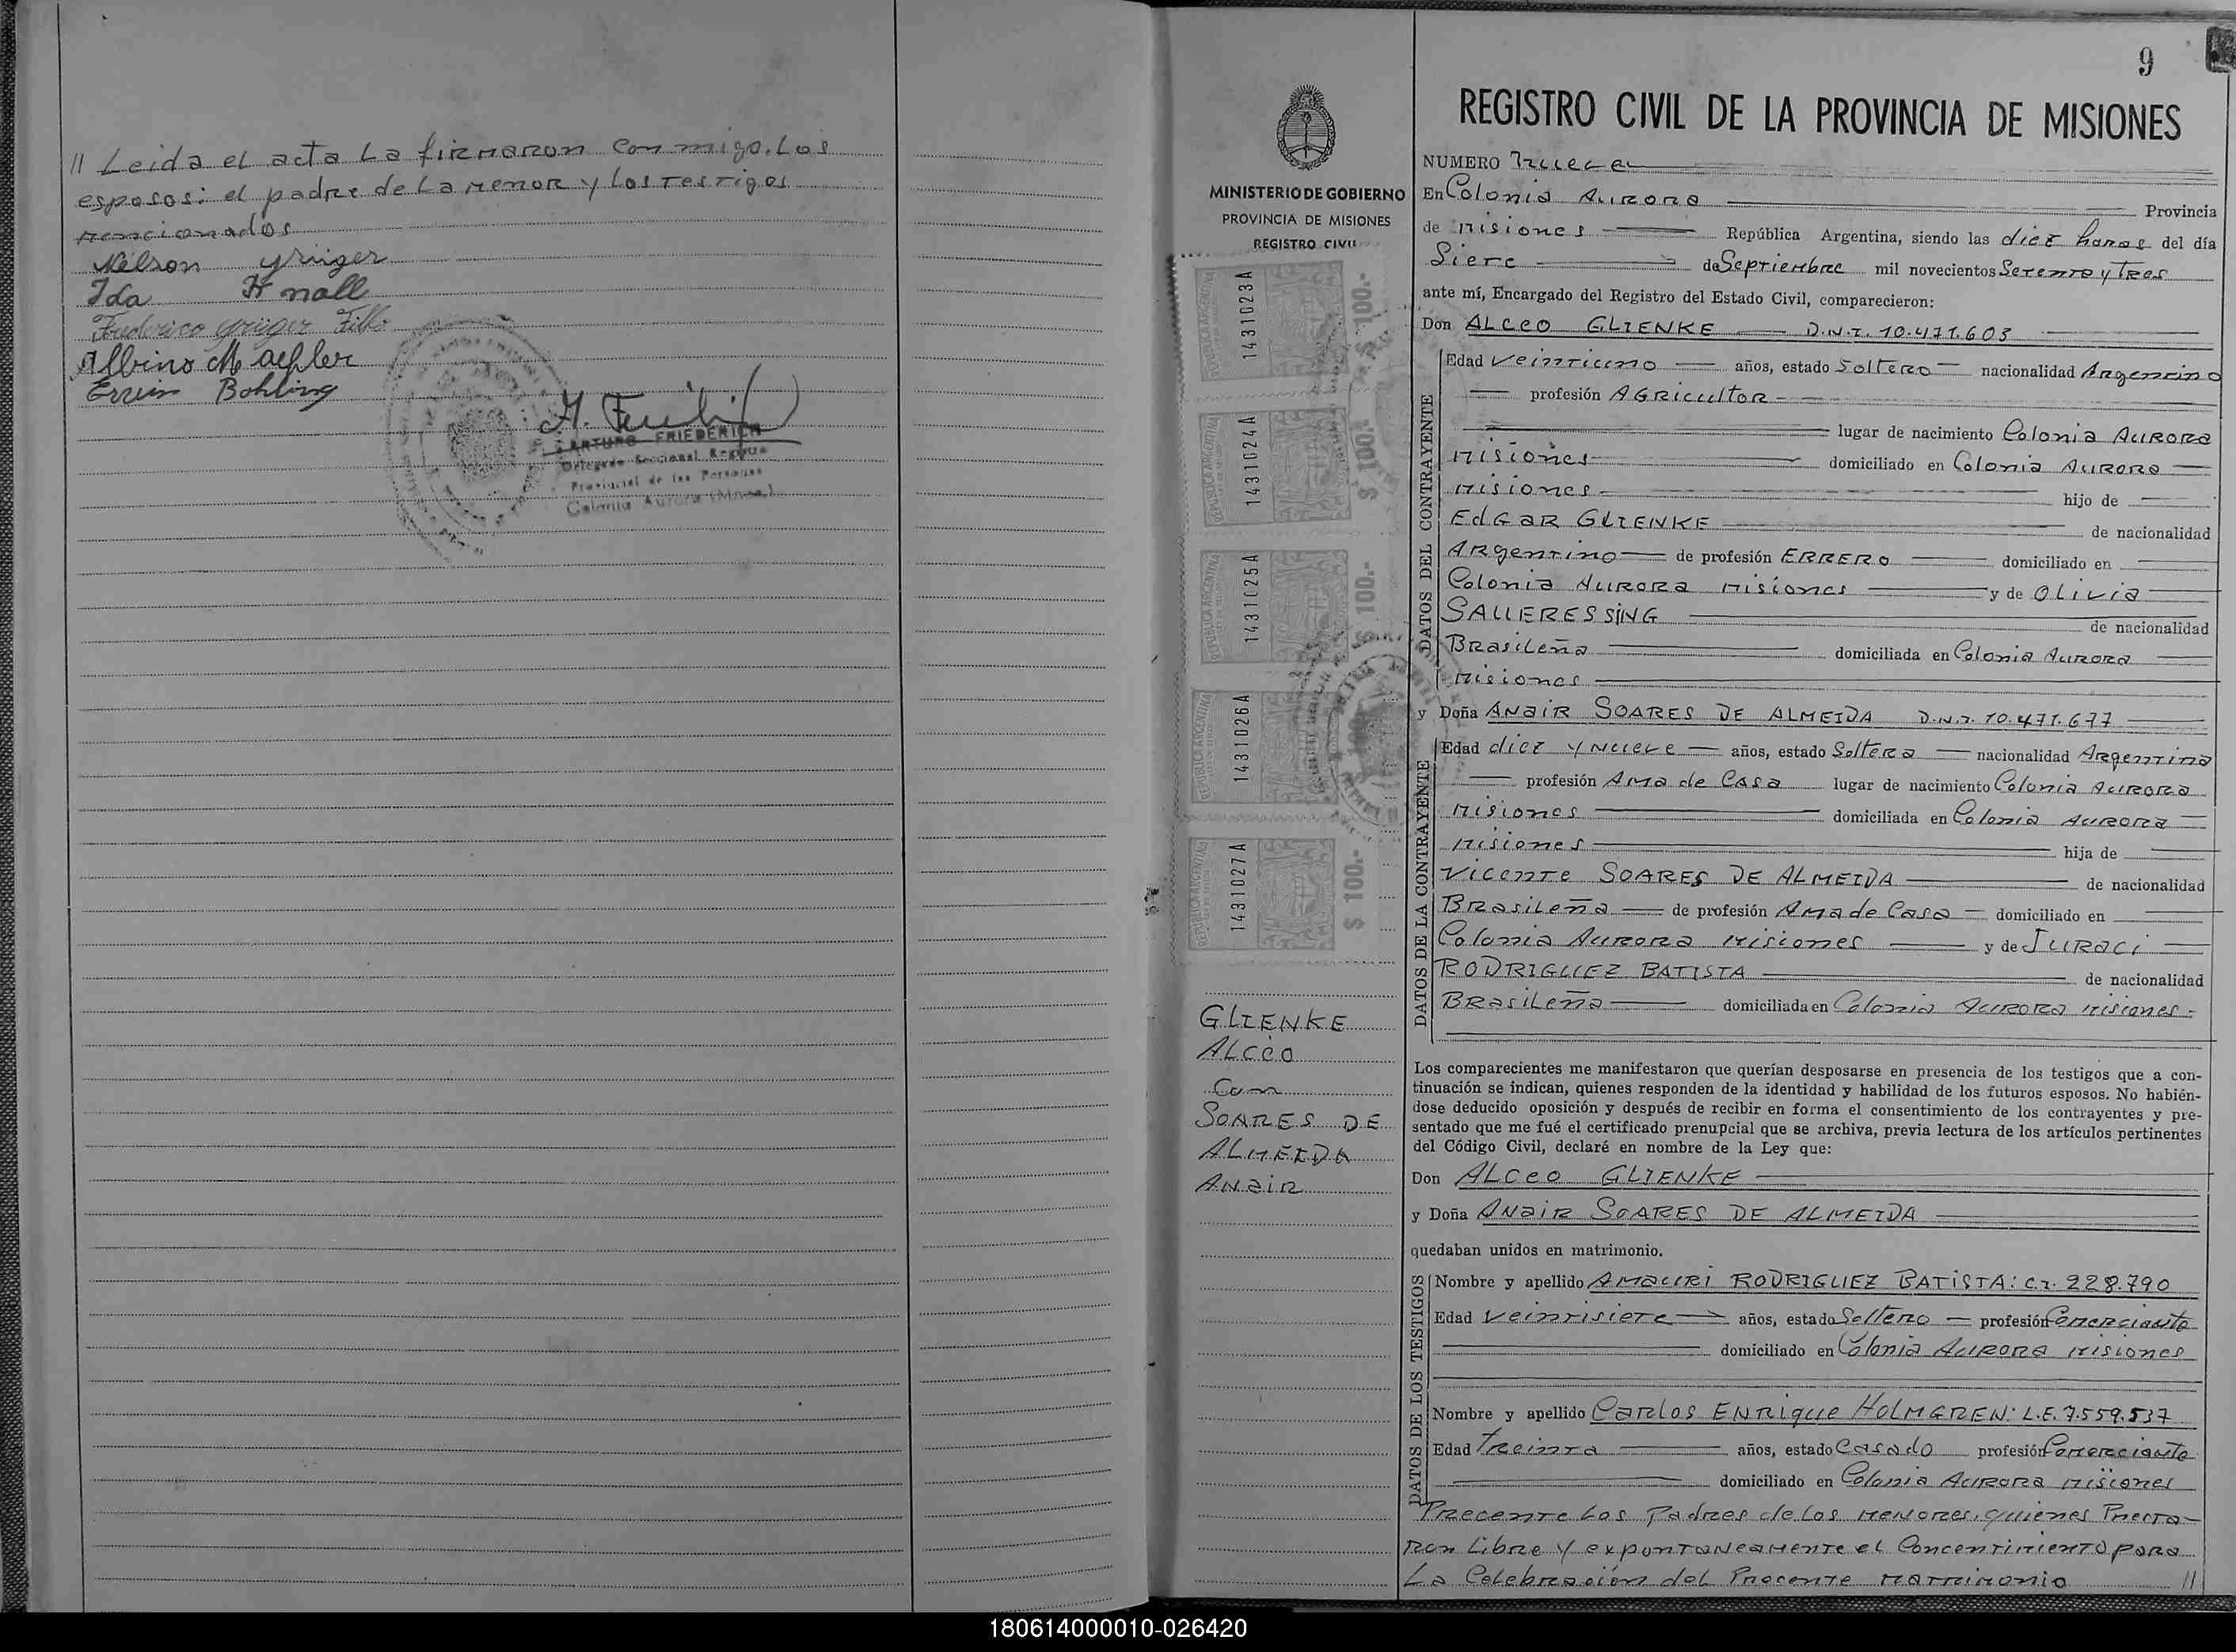 // Leida el acta La firmaron con migo. Los
esposos: el padre de La menor y los testigos
mencionados
Nelson Grüger
Ida Knall
Federico Grüger Filho
Albino Maehler
Erwin Bohling
ARTURO FRIEDERICH
Delegado Seccional Registro
Provincial de las Personas
Colonia Aurora (Mnes.)
9
MINISTERIO DE GOBIERNO
PROVINCIA DE MISIONES
REGISTRO CIVIL
REPUBLICA ARGENTINA 1431023A $ 100.-
REPUBLICA ARGENTINA 1431024A $ 100.-
REPUBLICA ARGENTINA 1431025A $ 100.-
REPUBLICA ARGENTINA 1431026A
REPUBLICA ARGENTINA 1431027A $ 100.-
GLIENKE
ALCEO
Con
SOARES DE
ALMEIDA
ANAIR
REGISTRO CIVIL DE LA PROVINCIA DE MISIONES
NUMERO Nueve
En Colonia Aurora Provincia
de Misiones República Argentina, siendo las diez horas del día
Siete de Septiembre mil novecientos Setenta y Tres
ante mí, Encargado del Registro del Estado Civil, comparecieron:
Don ALCEO GLIENKE D.N.I. 10.471.603
DATOS DEL CONTRAYENTE
Edad Veintiuno años, estado Soltero nacionalidad Argentino
profesión AGRicultor
lugar de nacimiento Colonia Aurora
Misiones domiciliado en Colonia Aurora
Misiones hijo de
EdGAR GLIENKE de nacionalidad
Argentino de profesión ERRERO domiciliado en
Colonia Aurora Misiones y de Olivia
SAUERESSING de nacionalidad
Brasileña domiciliada en Colonia Aurora
Misiones
y Doña ANAIR SOARES DE ALMEIDA D.N.I. 10.471.677
DATOS DE LA CONTRAYENTE
Edad diez y Nueve años, estado Soltera nacionalidad Argentina
profesión Ama de Casa lugar de nacimiento Colonia Aurora
Misiones domiciliada en Colonia Aurora
Misiones hija de
Vicente SOARES DE ALMEIDA de nacionalidad
Brasileña de profesión Ama de Casa domiciliado en
Colonia Aurora Misiones y de JURACI
RODRIGUEZ BATISTA de nacionalidad
Brasileña domiciliada en Colonia Aurora Misiones
Los comparecientes me manifestaron que querían desposarse en presencia de los testigos que a con-
tinuación se indican, quienes responden de la identidad y habilidad de los futuros esposos. No habién-
dose deducido oposición y después de recibir en forma el consentimiento de los contrayentes y pre-
sentado que me fué el certificado prenupcial que se archiva, previa lectura de los artículos pertinentes
del Código Civil, declaré en nombre de la Ley que:
Don ALCEO GLIENKE
y Doña ANAIR SOARES DE ALMEIDA
quedaban unidos en matrimonio.
DATOS DE LOS TESTIGOS
Nombre y apellido AMAURI RODRIGUEZ BATISTA: C.I. 228.790
Edad Veintisiete años, estado Soltero profesión Comerciante
domiciliado en Colonia Aurora Misiones
Nombre y apellido Carlos ENRique HOLMGREN: L.E. 7.559.537
Edad Treinta años, estado Casado profesión Comerciante
domiciliado en Colonia Aurora Misiones
Precente Los Padres de Los menores, quienes Presta-
ron Libre y expontaneamente el Concentimiento para
La Celebración del Precente matrimonio //
180614000010-026420